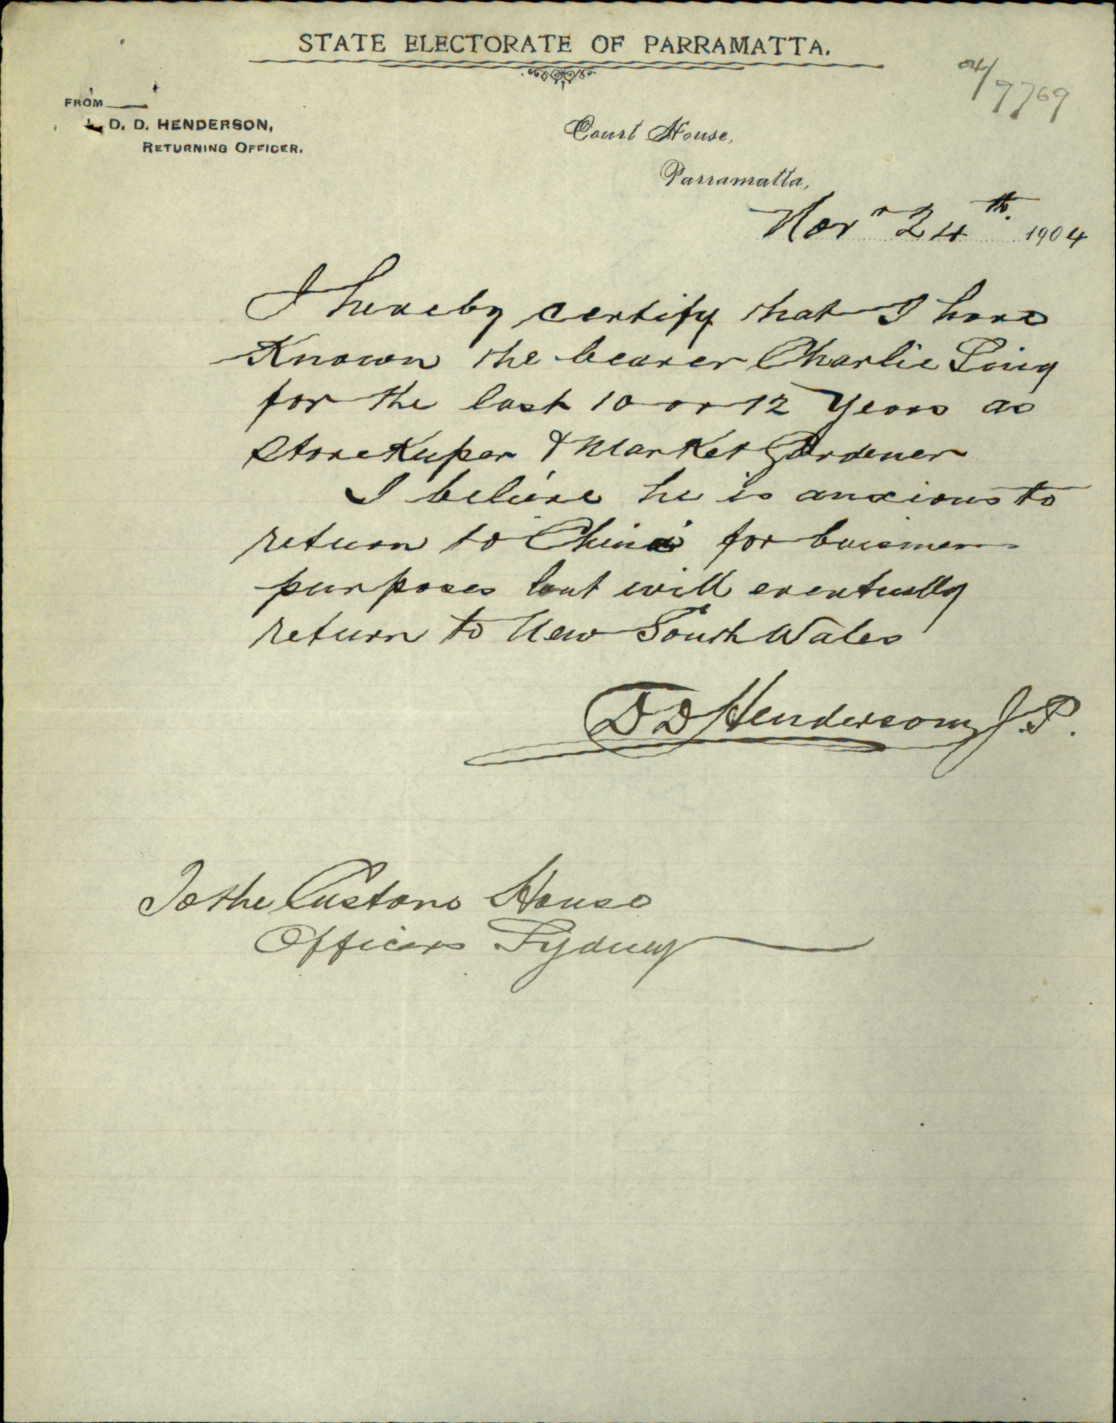 STATE ELECTORATE OF PARRAMATTA.
04/7769
FROM
D. D. HENDERSON,
RETURNING OFFICER.
Court House,
Parramatta,
Novr 24th 1904
I hereby certify that I have
Known the bearer Charlie
for the last 10 or 12 Years as
StoreKeeper & Market Gardener
I believe he is anxious to
return to China for buisness
purposes but will eventually
return to New South Wales
D D Henderson J.P.
To the Customs House
Officers Sydney